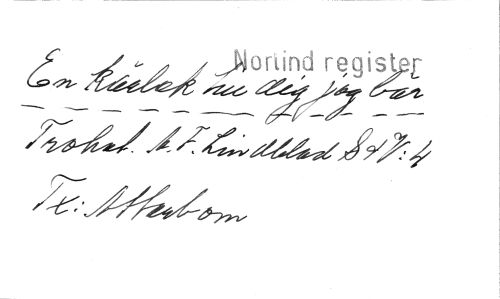 Norlind register
En kärlek hu dig jag bär
Trohet. A. F. Lindblad S & V: 4
Tx: Atterbom